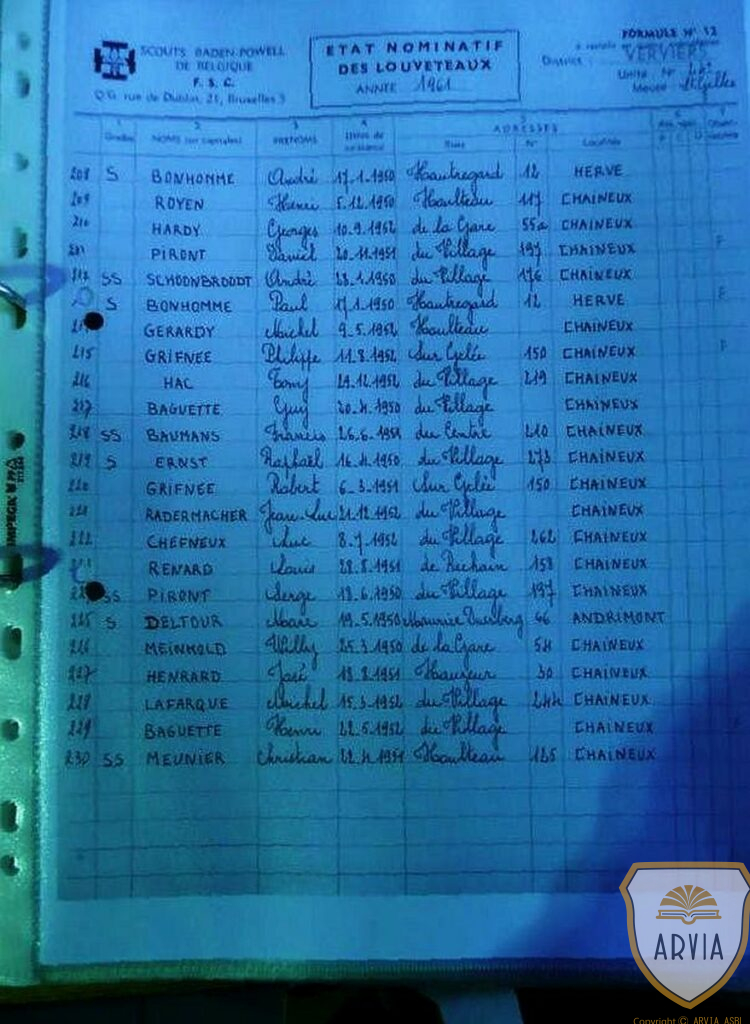 SCOUTS BADEN-POWELL
DE BELGIQUE
F. S. C.
Q.G. rue de Dublin, 21, Bruxelles 5
ETAT NOMINATIF
DES LOUVETEAUX
ANNÉE 1961
FORMULE N° 12
VERVIERS
District
Unité N°
Meute St Gilles
1 2 3 4 5 6 7
ADRESSES
Grades NOMS (en capitales) PRENOMS Dates de naissance Rues N° Localités
208 S BONHOMME André 17.1.1950 Hautregard 12 HERVE
209 ROYEN Henri 5.12.1950 Haulteau 117 CHAINEUX
210 HARDY Georges 10.9.1952 de la Gare 55a CHAINEUX
211 PIRONT Daniel 20.11.1951 du Village 197 CHAINEUX F
212 SS SCHOONBROODT André 28.1.1950 du Village 176 CHAINEUX
S BONHOMME Paul 17.1.1950 Hautregard 12 HERVE F
GERARDY Michel 9.5.1952 Haulteau CHAINEUX
215 GRIFNEE Philippe 11.8.1952 Sur Gelée 150 CHAINEUX
216 HAC Tony 29.12.1952 du Village 219 CHAINEUX
217 BAGUETTE Guy 20.4.1950 du Village CHAINEUX
218 SS BAUMANS Francis 26.6.1951 du Centre 210 CHAINEUX
219 S ERNST Raphaël 16.4.1950 du Village 273 CHAINEUX
220 GRIFNEE Robert 6.3.1951 Sur Gelée 150 CHAINEUX
221 RADERMACHER Jean-Luc 21.12.1952 du Village CHAINEUX
222 CHEFNEUX Luc 8.7.1952 du Village 262 CHAINEUX
RENARD Louis 28.8.1951 de Rechain 158 CHAINEUX
SS PIRONT Serge 18.6.1950 du Village 197 CHAINEUX
225 S DELTOUR Marc 19.5.1950 Maurice 46 ANDRIMONT
226 MEINHOLD Willy 25.3.1950 de la Gare 54 CHAINEUX
227 HENRARD José 18.8.1951 Hauzeur 30 CHAINEUX
228 LAFARQUE Michel 15.3.1952 du Village 244 CHAINEUX
229 BAGUETTE Henri 22.5.1952 du Village CHAINEUX
230 SS MEUNIER Christian 22.4.1951 Haulteau 125 CHAINEUX
IMPEGA
ARVIA
Copyright © ARVIA ASBL